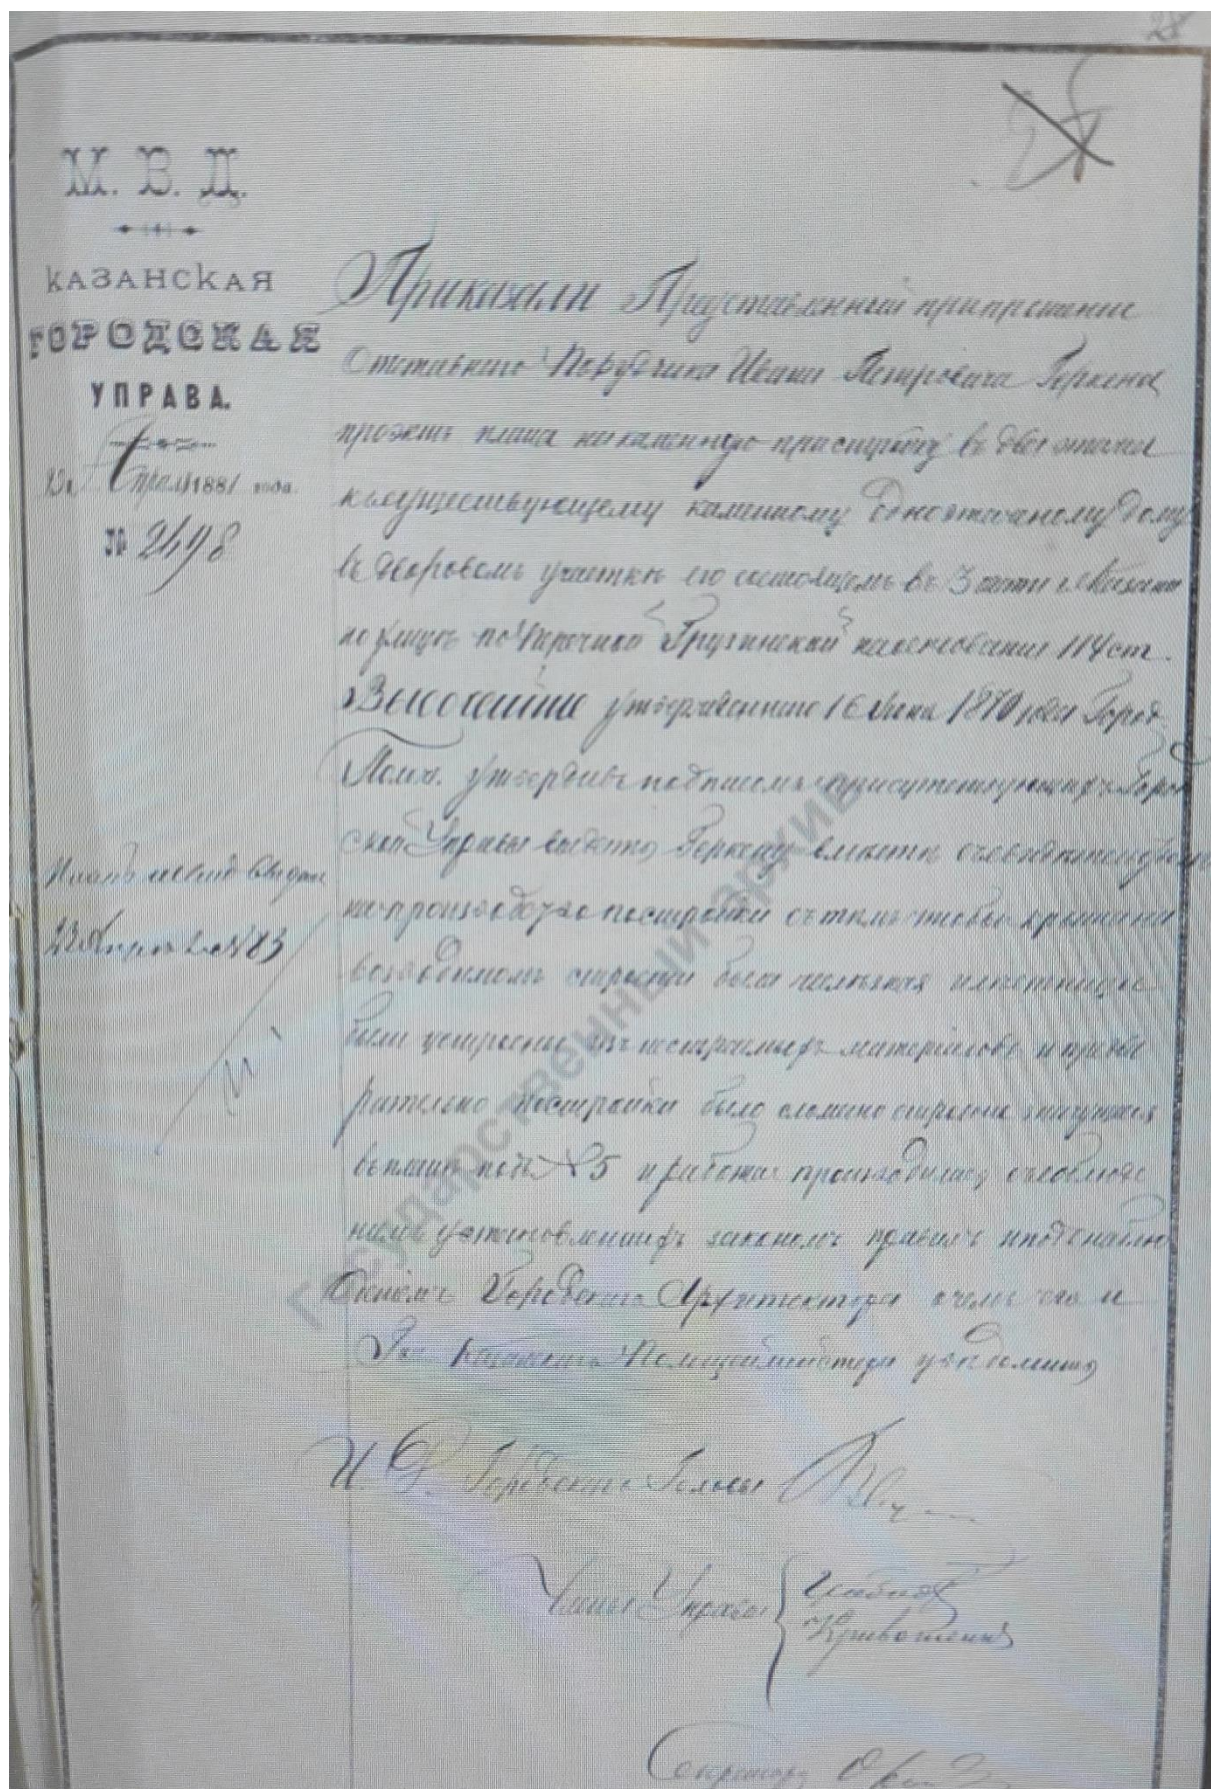 28
М. В. Д.
КАЗАНСКАЯ
ГОРОДСКАЯ
УПРАВА.
Апреля 1881 года.
№ 2498
Приказали Представленный при прошении
Отставнаго Поручика Ивана Петровича Геркена
проэктъ плана на каменную пристройку въ два этажа
къ существующему каменному одноэтажному дому
въ дворовомъ участкѣ его состоящемъ въ 3 части г. Казани
по улицѣ Грузинской на основании 114 ст.
Высочайше утвержденнаго 16 Июня 1870 года Город.
Полож. утвердивъ подписомъ присутствующихъ Город
ской Управы выдать Геркену вмѣстѣ съ свидѣтельствомъ
на производство постройки съ тѣмъ чтобы крыша на
возводимомъ строении была желѣзная и лѣстницы
были устроены изъ несгараемыхъ матеріаловъ и предва
рительно постройки было сломано строение значущееся
въ планѣ подъ № 5 и работа производилась съ соблюде
ниемъ установленныхъ закономъ правилъ и подъ наблю
дениемъ Городскаго Архитектора о чемъ его и
Г. Казанскаго Полицеймейстера увѣдомить
И. Д. Городскаго Головы
Члены Управы
Секретарь
Планъ и свид.
23 Апреля № 83
Государственный архив